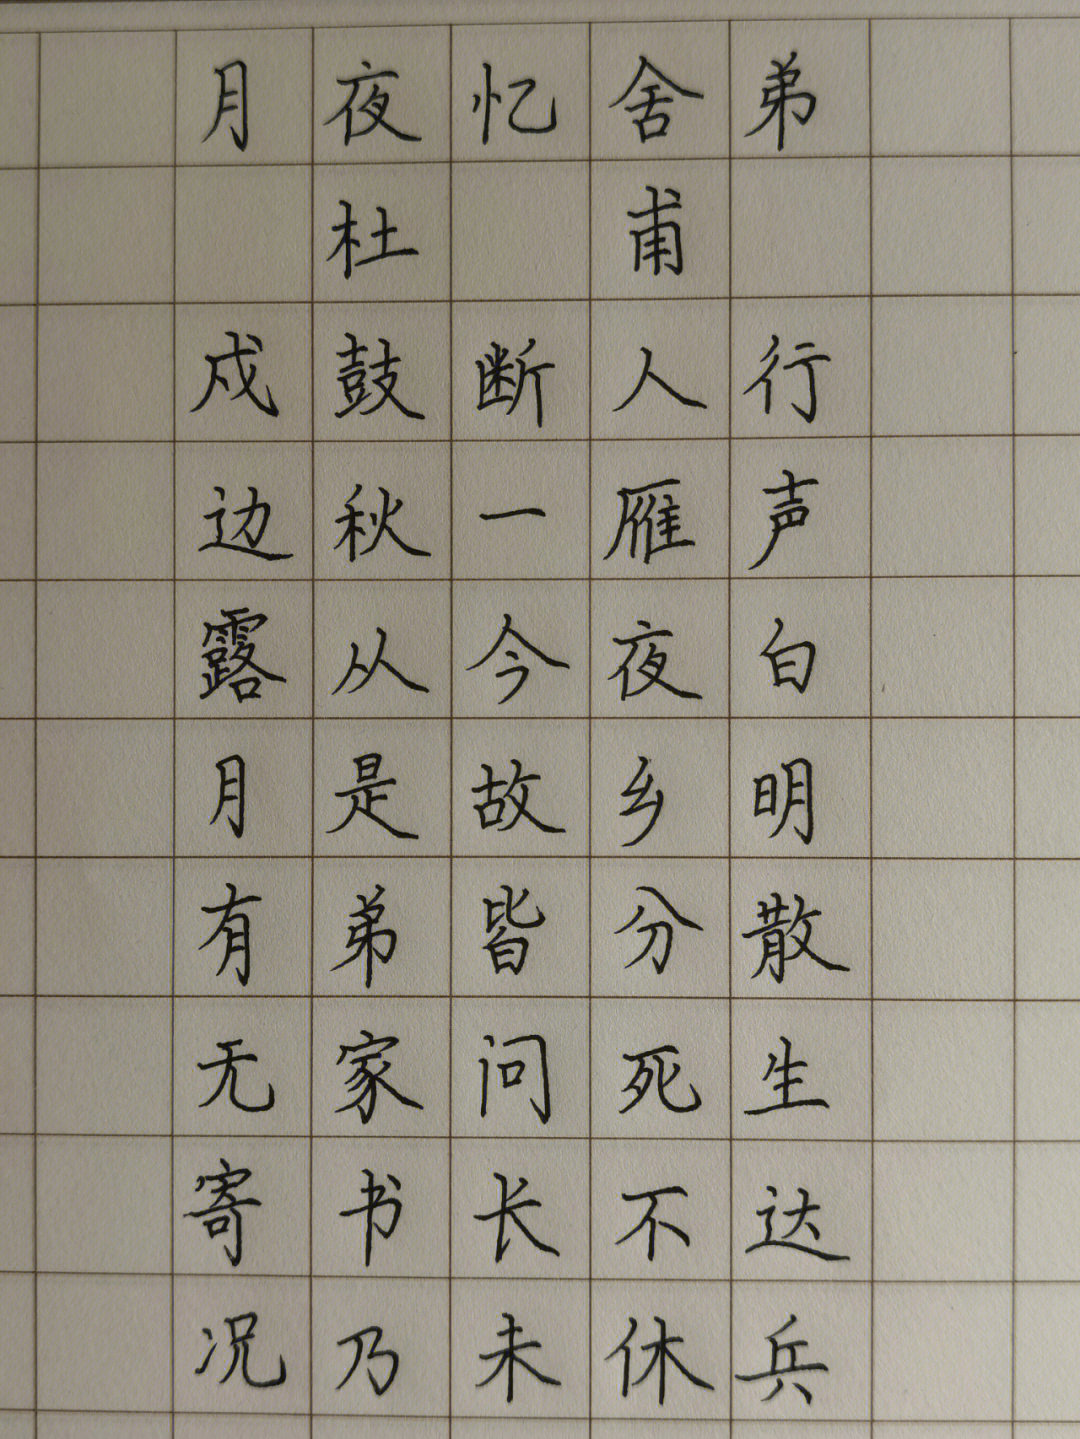 月夜忆舍弟
杜甫
戍鼓断人行
边秋一雁声
露从今夜白
月是故乡明
有弟皆分散
无家问死生
寄书长不达
况乃未休兵